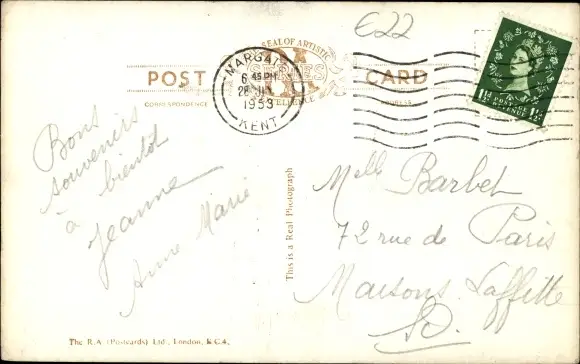 €22
SEAL OF ARTISTIC
EXCELLENCE
SERIES
POST CARD
CORRESPONDENCE
ADDRESS
MARGATE
6 45 PM
28
1953
KENT
1½ POSTAGE REVENUE 1½
Bons
souvenirs
à bientôt
Jeanne
Anne Marie
This is a Real Photograph
Melle Barbet
72 rue de Paris
Maisons Laffitte
The R.A. (Postcards) Ltd., London, E.C.4.